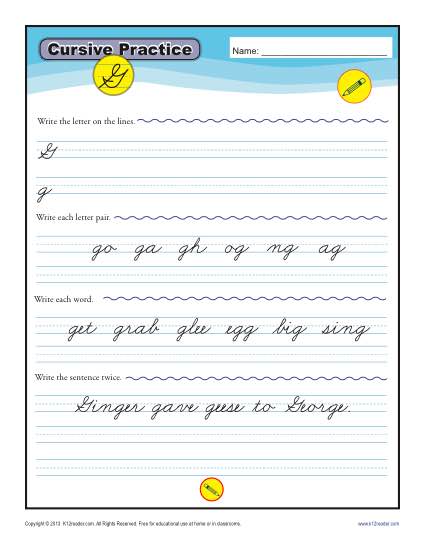 Cursive Practice
Name: ____________________
G
Write the letter on the lines.
G
g
Write each letter pair.
go ga gh og ng ag
Write each word.
get grab glee egg big sing
Write the sentence twice.
Ginger gave geese to George.
Copyright © 2013 K12reader.com. All Rights Reserved. Free for educational use at home or in classrooms.
www.k12reader.com